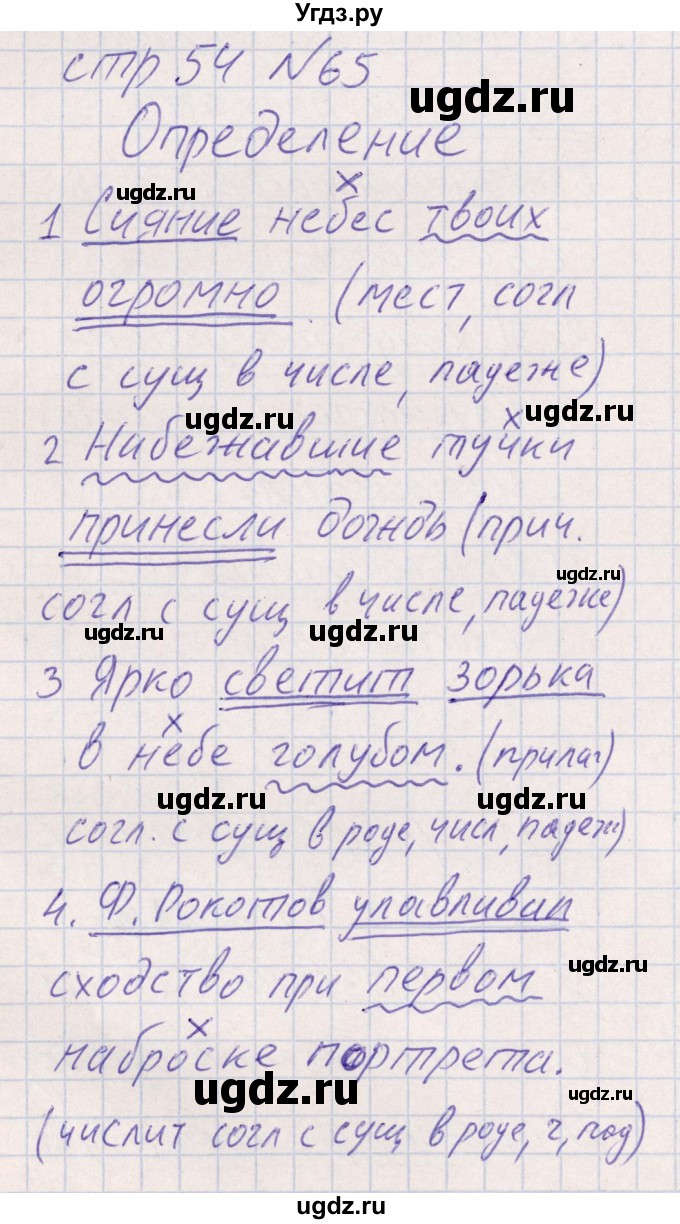 Угдз.ру
стр 54 №65
ugdz.ru
Определение
ugdz.ru
1 Сияние небес твоих
огромно. (мест, согл
с сущ в числе, падеже)
ugdz.ru
ugdz.ru
2 Набежавшие тучки
принесли дождь (прич.
ugdz.ru
согл с сущ в числе, падеже)
ugdz.ru
ugdz.ru
3 Ярко светит зорька
в небе голубом. (прилаг)
ugdz.ru
ugdz.ru
согл. с сущ в роде, числ, падеж)
4. Ф. Рокотов улавливал
ugdz.ru
сходство при первом
наброске портрета.
ugdz.ru
ugdz.ru
(числит согл с сущ в роде, ч, пад)
ugdz.ru